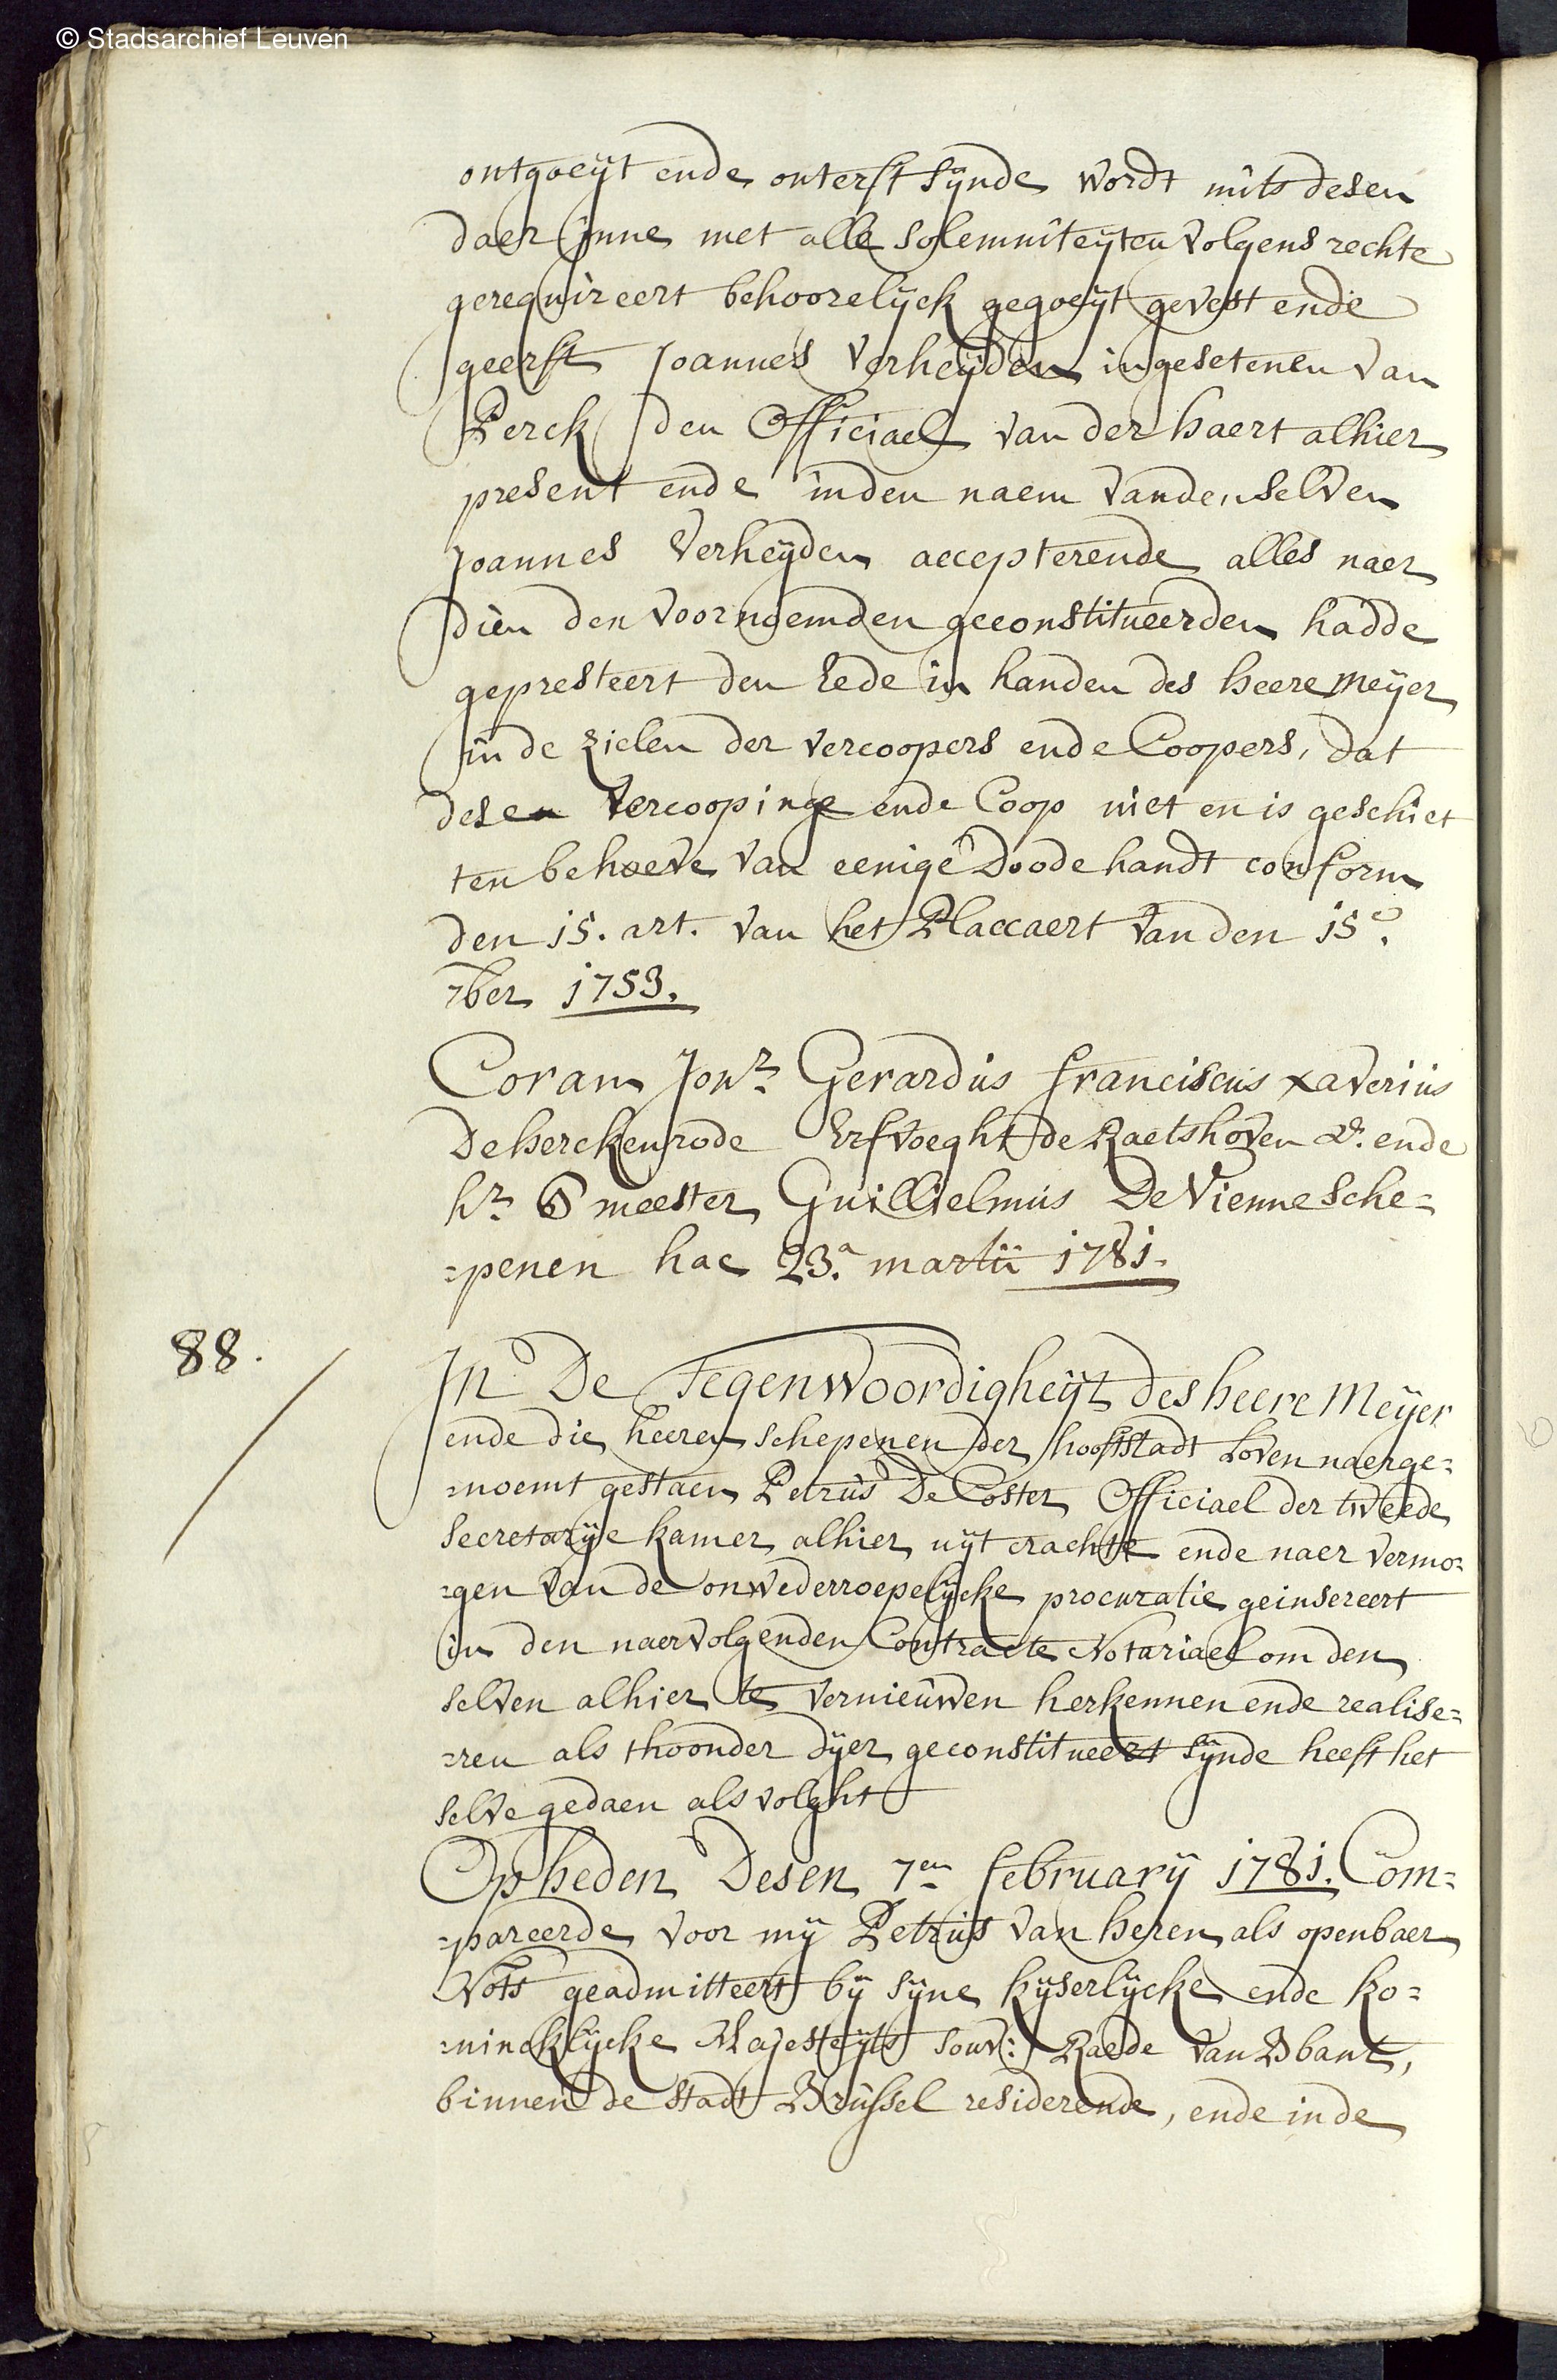 © Stadsarchief Leuven
ontgoeijt ende onterft sijnde wordt mits desen
daer inne met alle solemniteijten volgens rechte
gerequireert behoorelijck gegoeijt gevest ende
geerft Joannes Verheijden ingesetenen van
Perck den Officiael van der haert alhier
present ende inden naem vanden selven
Joannes Verheijden accepterende alles naer
dien den voornoemden geconstitueerden hadde
gepresteert den Eede in handen des heere Meijer
in de zielen der vercoopers ende Coopers, dat
desen vercoopinge ende Coop niet en is geschiet
ten behoeve van eenige Doode handt conform
den 15. art. van het Placcaert van den 15e.
7ber 1753.
Coram Jonr. Gerardus franciscus xaverius
De herckenrode Erfvoeght de Raetshoven &. ende
hr. B meester Guillielmus De Vienne Sche=
=penen hac 23.a martii 1781.
88.
In De Tegenwoordigheijt des heere Meijer
ende die heeren schepenen der hooftstadt Loven naerge=
=noemt gestaen Petrus De Coster Officiael der tweede
Secretarije kamer alhier uijt crachte ende naer vermo=
=gen van de onwederroepelijcke procuratie geinsereert
in den naervolgenden Contracte Notariael om den
selven alhier te vernieuwen herkennen ende realise=
=ren als thoonder dijer geconstitueert sijnde heeft het
selve gedaen als volght
Op heden Desen 7en february 1781. Com=
=pareerde voor mij Petrus Van heren als openbaer
Nots geadmitteert bij sijne kijserlijcke ende ko=
=nincklijcke Majesteijts souv: Raede van Bbant,
binnen de stadt Brussel residerende, ende in de